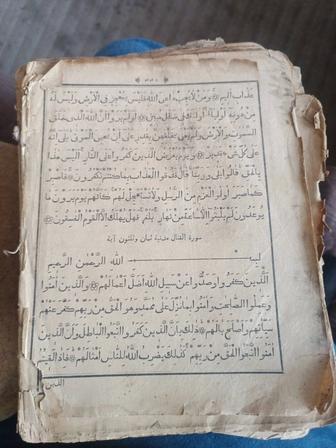 عذاب اليم ومن لا يجب داعى الله فليس بمعجز فى الارض وليس له
من دونه اولياء اولئك فى ضلال مبين اولم يروا ان الله الذى خلق
السموت والارض ولم يعى بخلقهن بقدر على ان يحيى الموتى بلى انه
على كل شىء قدير ويوم يعرض الذين كفروا على النار اليس هذا
بالحق قالوا بلى وربنا قال فذوقوا العذاب بما كنتم تكفرون فاصبر
كما صبر اولوا العزم من الرسل ولا تستعجل لهم كانهم يوم يرون ما
يوعدون لم يلبثوا الا ساعة من نهار بلغ فهل يهلك الا القوم الفسقون
سورة القتال مدنية ثمان وثلثون آية
بسم الله الرحمن الرحيم
الذين كفروا وصدوا عن سبيل الله اضل اعمالهم والذين امنوا
وعملوا الصلحت وامنوا بما نزل على محمد وهو الحق من ربهم كفر عنهم
سيئاتهم واصلح بالهم ذلك بان الذين كفروا اتبعوا الباطل وان الذين
امنوا اتبعوا الحق من ربهم كذلك يضرب الله للناس امثالهم فاذا لقيتم
الذين